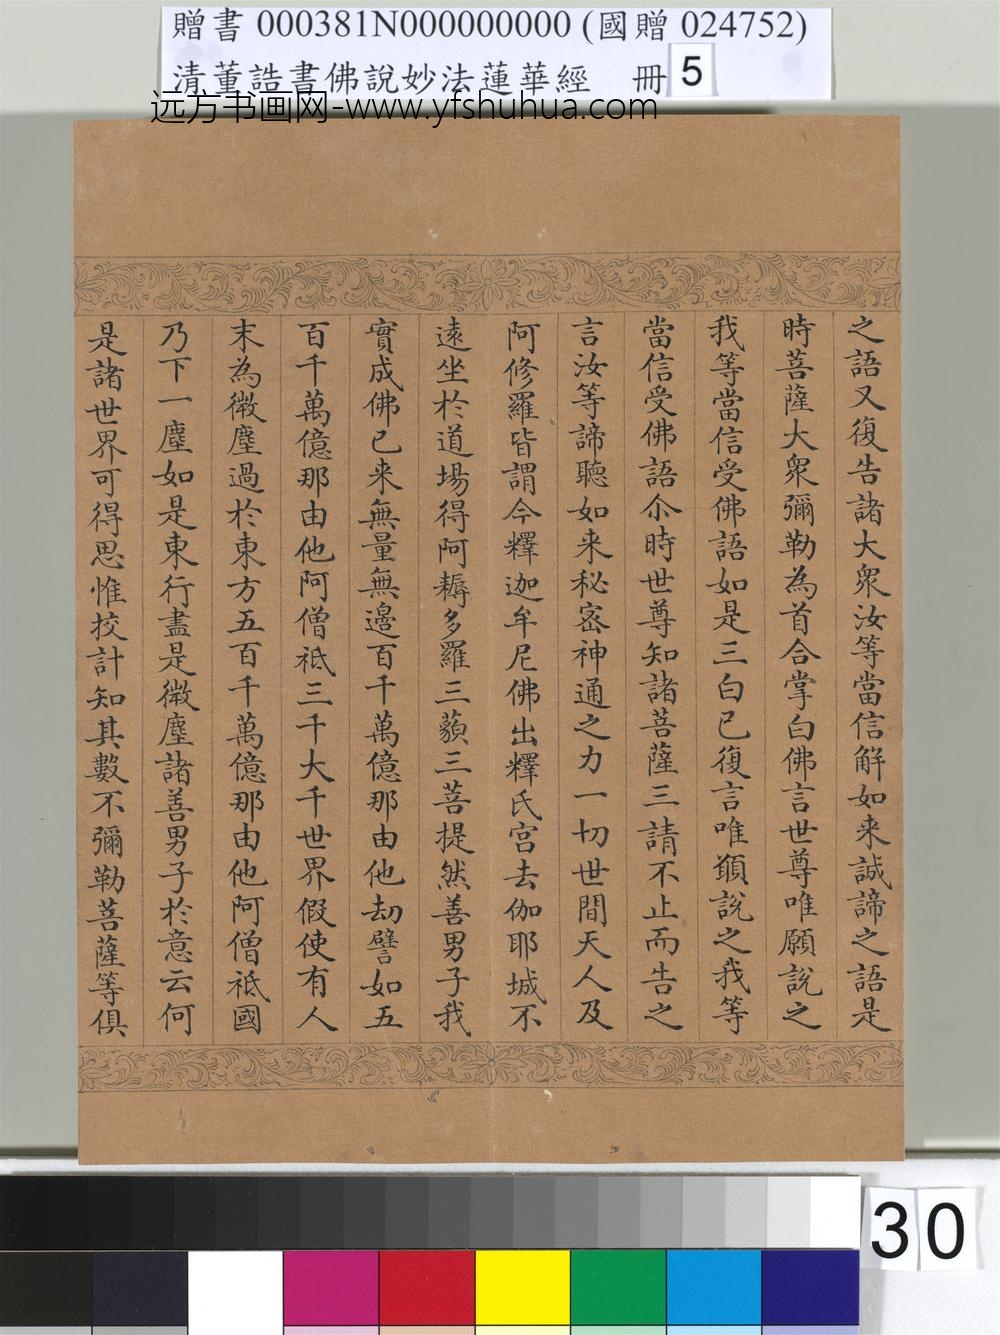 贈書 000381N000000000 (國贈 024752)
清董誥書佛說妙法蓮華經 冊 5
远方书画网-www.yfshuhua.com
之語又復告諸大眾汝等當信解如来誠諦之語是
時菩薩大眾彌勒為首合掌白佛言世尊唯願說之
我等當信受佛語如是三白已復言唯願說之我等
當信受佛語尒時世尊知諸菩薩三請不止而告之
言汝等諦聽如来秘密神通之力一切世間天人及
阿修羅皆謂今釋迦牟尼佛出釋氏宮去伽耶城不
遠坐於道場得阿耨多羅三藐三菩提然善男子我
實成佛已来無量無邊百千萬億那由他劫譬如五
百千萬億那由他阿僧祇三千大千世界假使有人
末為微塵過於東方五百千萬億那由他阿僧祇國
乃下一塵如是東行盡是微塵諸善男子於意云何
是諸世界可得思惟挍計知其數不彌勒菩薩等俱
30